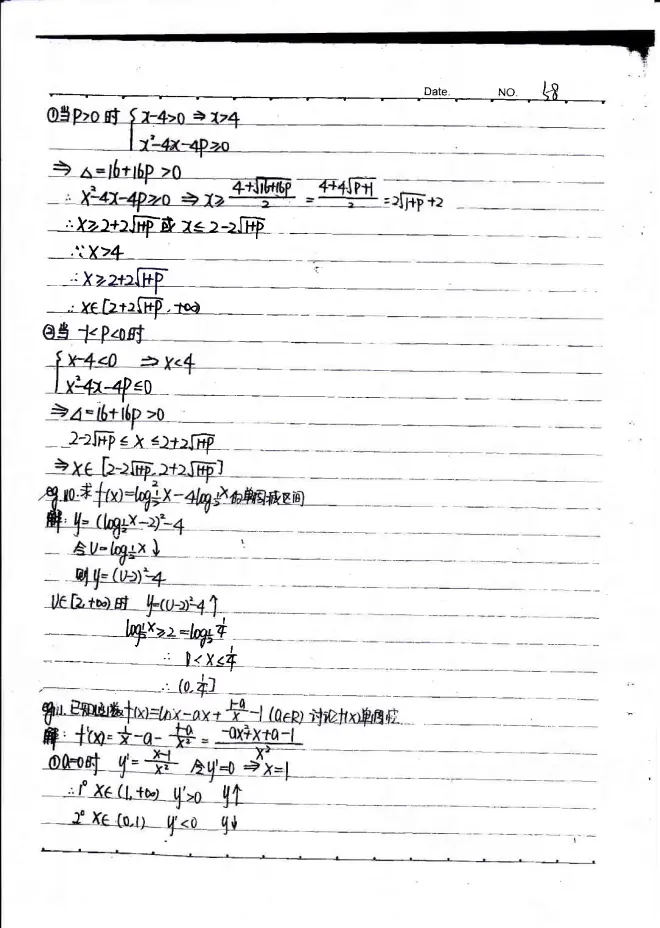 Date. NO. 58
①当P>0时 { x-4>0 ⇒ x>4
x²-4x-4P≥0
⇒ △=16+16P >0
∴ x²-4x-4P≥0 ⇒ x≥ (4+√(16+16P))/2 = (4+4√(P+1))/2 = 2√(1+P) +2
∴x≥2+2√(1+P) 或 x≤2-2√(1+P)
∵x>4
∴x≥2+2√(1+P)
∴x∈[2+2√(1+P), +∞)
②当 -1<P<0时
{ x-4<0 ⇒x<4
x²-4x-4P≤0
⇒△=16+16P >0
2-2√(1+P) ≤ x ≤2+2√(1+P)
⇒x∈[2-2√(1+P), 2+2√(1+P)]
eg.10.求f(x)=log²_(1/2) x-4log_(1/2) x的单调减区间
解: y=(log_(1/2) x-2)²-4
令U=log_(1/2) x↓
则y=(U-2)²-4
U∈[2,+∞)时 y=(U-2)²-4↑
log_(1/2) x≥2=log_(1/2) 1/4
∴ 0<x≤1/4
∴(0, 1/4]
eg.11.已知函数f(x)=lnx-ax+(1-a)/x-1 (a∈R) 讨论f(x)单调性
解: f'(x)=1/x-a-(1-a)/x²=(-ax²+x+a-1)/x²
①a=0时 y'=(x-1)/x² 令y'=0 ⇒x=1
∴1° x∈(1,+∞) y'>0 y↑
2° x∈(0,1) y'<0 y↓